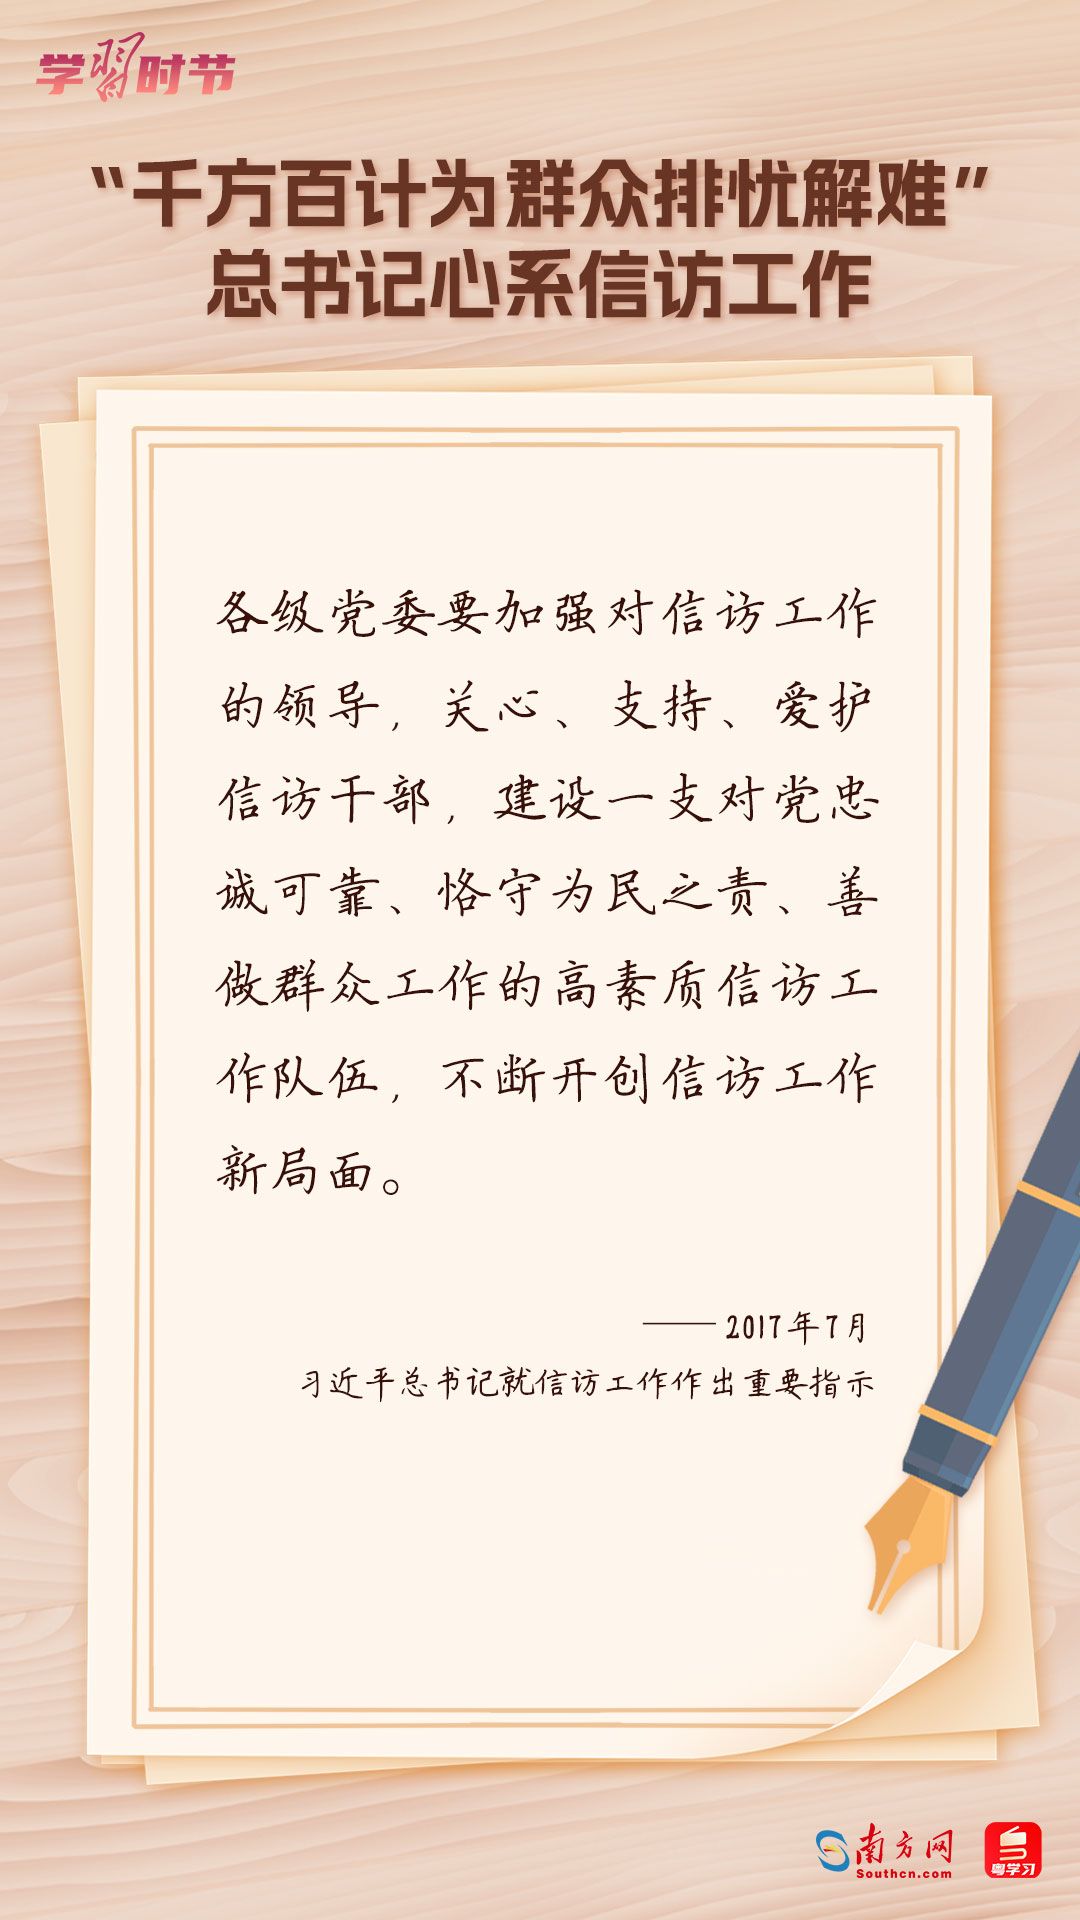 学习时节
“千方百计为群众排忧解难”
总书记心系信访工作
各级党委要加强对信访工作
的领导，关心、支持、爱护
信访干部，建设一支对党忠
诚可靠、恪守为民之责、善
做群众工作的高素质信访工
作队伍，不断开创信访工作
新局面。
——2017年7月
习近平总书记就信访工作作出重要指示
南方网
Southcn.com
粤学习